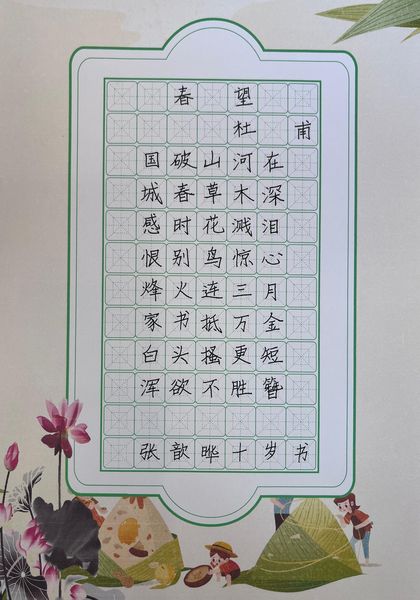 春望
杜甫
国破山河在
城春草木深
感时花溅泪
恨别鸟惊心
烽火连三月
家书抵万金
白头搔更短
浑欲不胜簪
张歆晔十岁书